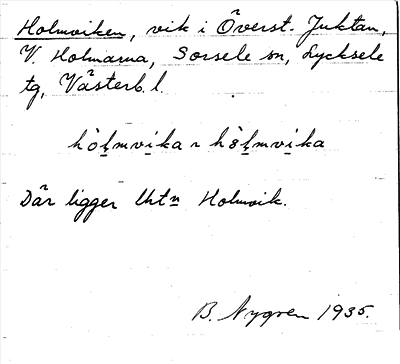 Holmviken, vik i Överst. Juktan,
V. Holmarna, Sorsele sn, Lycksele
tg, Västerb. l.
hòḻmvi̱ka ~ hö̀ḻmvi̱ka
Där ligger lht Holmvik.
B. Nygren 1935.